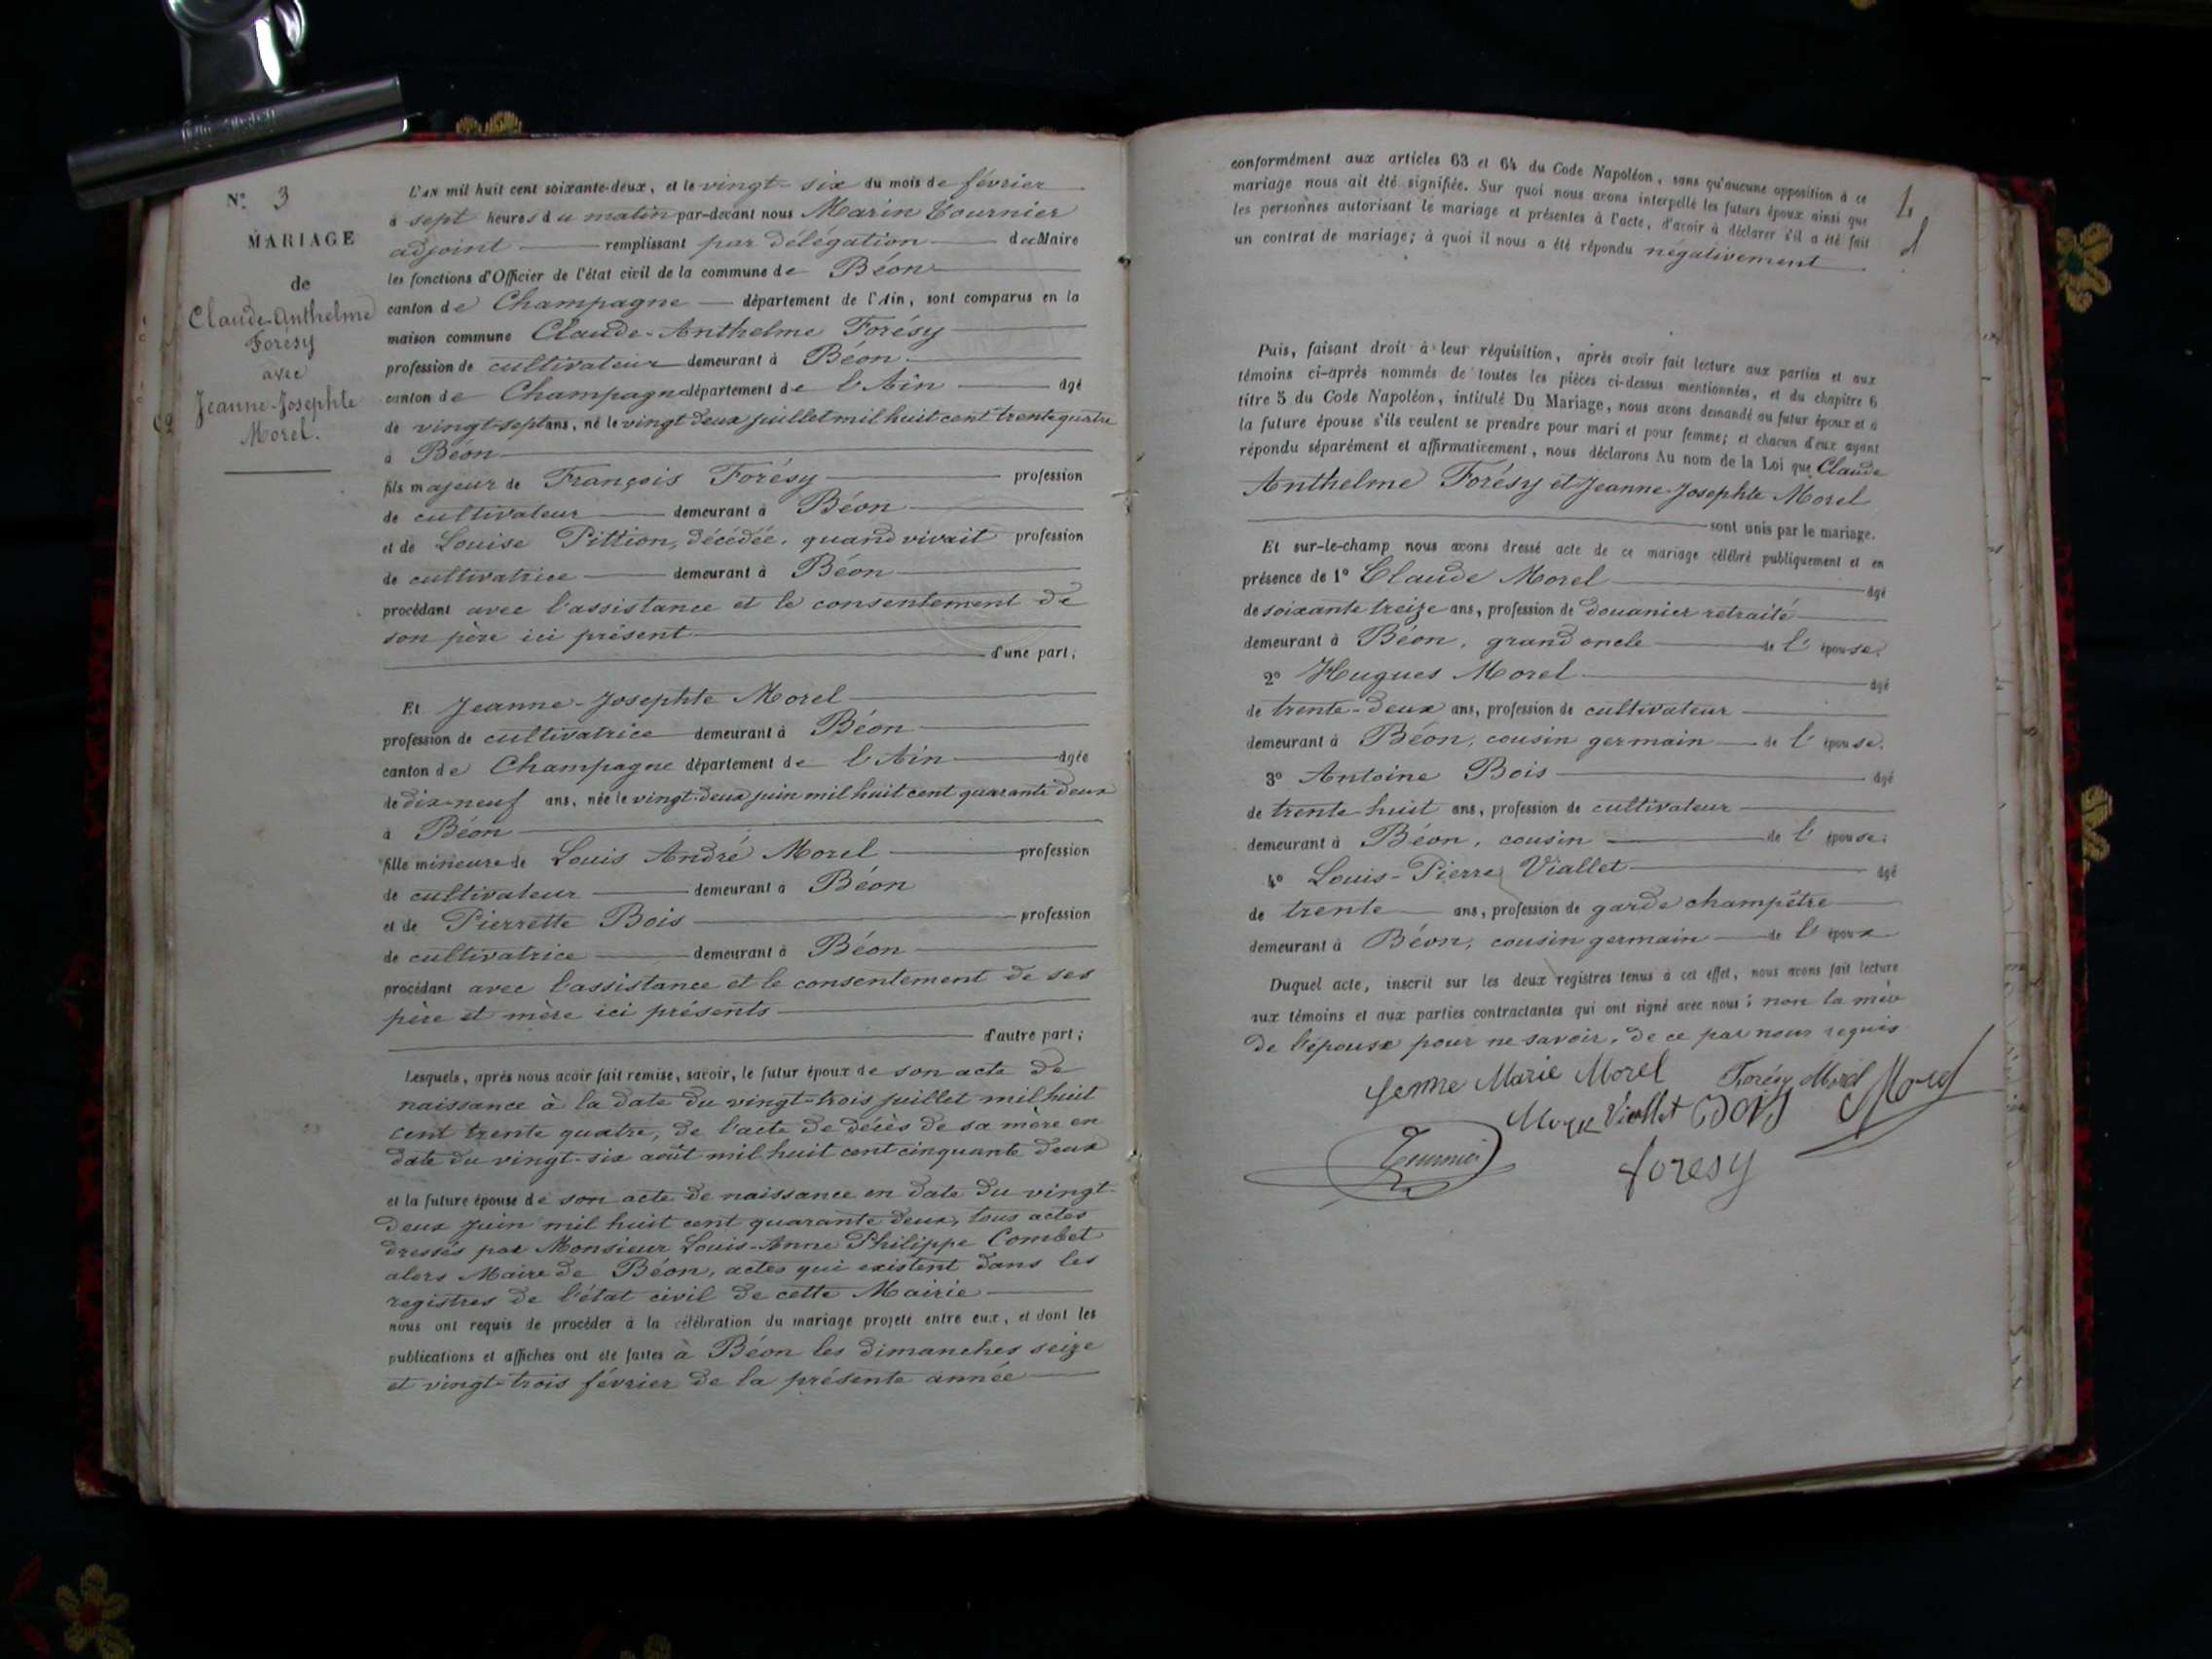 N.º 3
MARIAGE
de
Claude-Anthelme
Forésy
avec
Jeanne-Josephte
Morel.
L'AN mil huit cent soixante-deux, et le vingt-six du mois de février
à sept heures du matin par-devant nous Marin Tournier
adjoint remplissant par délégation du Maire
les fonctions d'Officier de l'état civil de la commune de Béon
canton de Champagne département de l'Ain, sont comparus en la
maison commune Claude-Anthelme Forésy
profession de cultivateur demeurant à Béon
canton de Champagne département de l'Ain âgé
de vingt-sept ans, né le vingt deux juillet mil huit cent trente quatre
à Béon
fils majeur de François Forésy profession
de cultivateur demeurant à Béon
et de Louise Pittion, décédée, quand vivait profession
de cultivatrice demeurant à Béon
procédant avec l'assistance et le consentement de
son père ici présent
d'une part;
Et Jeanne-Josephte Morel
profession de cultivatrice demeurant à Béon
canton de Champagne département de l'Ain âgée
de dix-neuf ans, née le vingt-deux juin mil huit cent quarante deux
à Béon
fille mineure de Louis André Morel profession
de cultivateur demeurant à Béon
et de Pierrette Bois profession
de cultivatrice demeurant à Béon
procédant avec l'assistance et le consentement de ses
père et mère ici présents
d'autre part;
Lesquels, après nous avoir fait remise, savoir, le futur époux de son acte de
naissance à la date du vingt-trois juillet mil huit
cent trente quatre, de l'acte de décès de sa mère en
date du vingt-six août mil huit cent cinquante deux
et la future épouse de son acte de naissance en date du vingt-
deux juin mil huit cent quarante deux, tous actes
dressés par Monsieur Louis-Anne Philippe Combet
alors Maire de Béon, actes qui existent dans les
registres de l'état civil de cette Mairie
nous ont requis de procéder à la célébration du mariage projeté entre eux, et dont les
publications et affiches ont été faites à Béon les dimanches seize
et vingt-trois février de la présente année
conformément aux articles 63 et 64 du Code Napoléon, sans qu'aucune opposition à ce
mariage nous ait été signifiée. Sur quoi nous avons interpellé les futurs époux ainsi que
les personnes autorisant le mariage et présentes à l'acte, d'avoir à déclarer s'il a été fait
un contrat de mariage; à quoi il nous a été répondu négativement
Puis, faisant droit à leur réquisition, après avoir fait lecture aux parties et aux
témoins ci-après nommés de toutes les pièces ci-dessus mentionnées, et du chapitre 6
titre 5 du Code Napoléon, intitulé Du Mariage, nous avons demandé au futur époux et à
la future épouse s'ils veulent se prendre pour mari et pour femme; et chacun d'eux ayant
répondu séparément et affirmativement, nous déclarons Au nom de la Loi que Claude
Anthelme Forésy et Jeanne-Josephte Morel
sont unis par le mariage.
Et sur-le-champ nous avons dressé acte de ce mariage célébré publiquement et en
présence de 1º Claude Morel âgé
de soixante treize ans, profession de douanier retraité
demeurant à Béon, grand oncle de l'épouse.
2º Hugues Morel âgé
de trente-deux ans, profession de cultivateur
demeurant à Béon, cousin germain de l'épouse.
3º Antoine Bois âgé
de trente huit ans, profession de cultivateur
demeurant à Béon, cousin de l'épouse.
4º Louis-Pierre Viallet âgé
de trente ans, profession de garde champêtre
demeurant à Béon, cousin germain de l'époux
Duquel acte, inscrit sur les deux registres tenus à cet effet, nous avons fait lecture
aux témoins et aux parties contractantes qui ont signé avec nous; non la mère
de l'épouse pour ne savoir, de ce par nous requis
Marie Morel Forésy Morel Morel
Viallet Bois
Tournier foresy